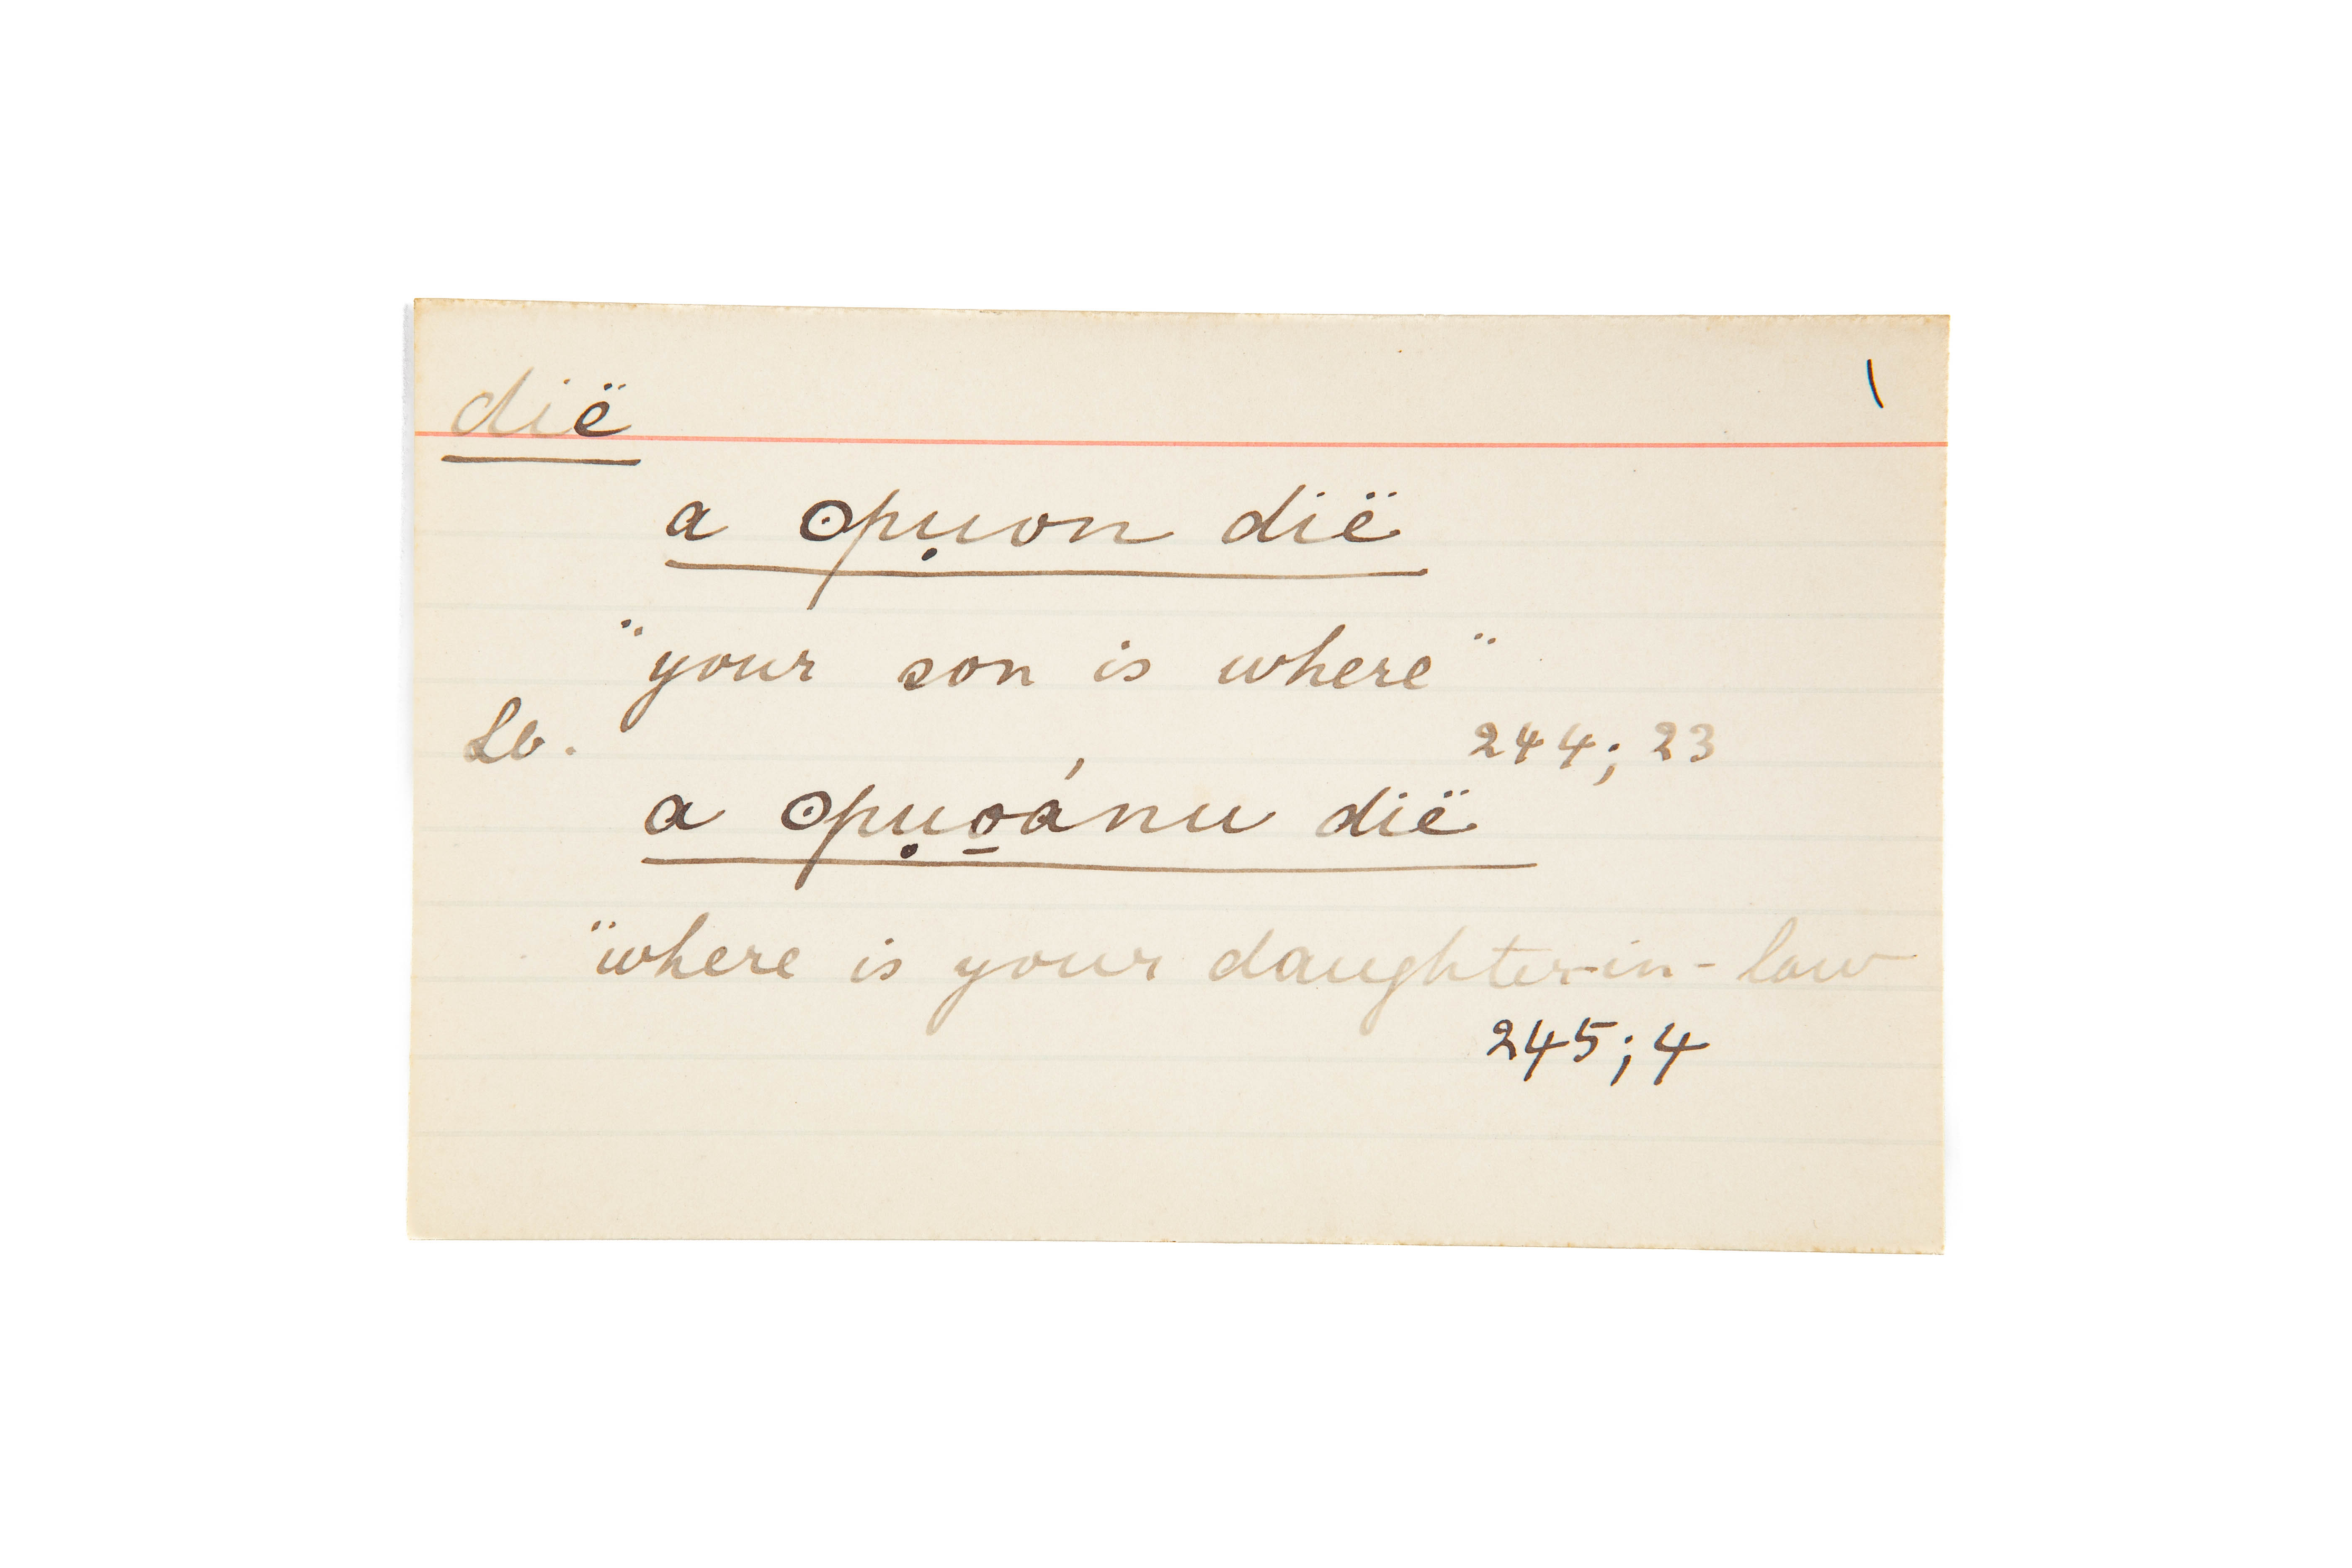 dië \
a ʘpụon dië
"your son is where"
Lb. 244; 23
a ʘpụo̱ánu dië
"where is your daughter-in-law
245; 4